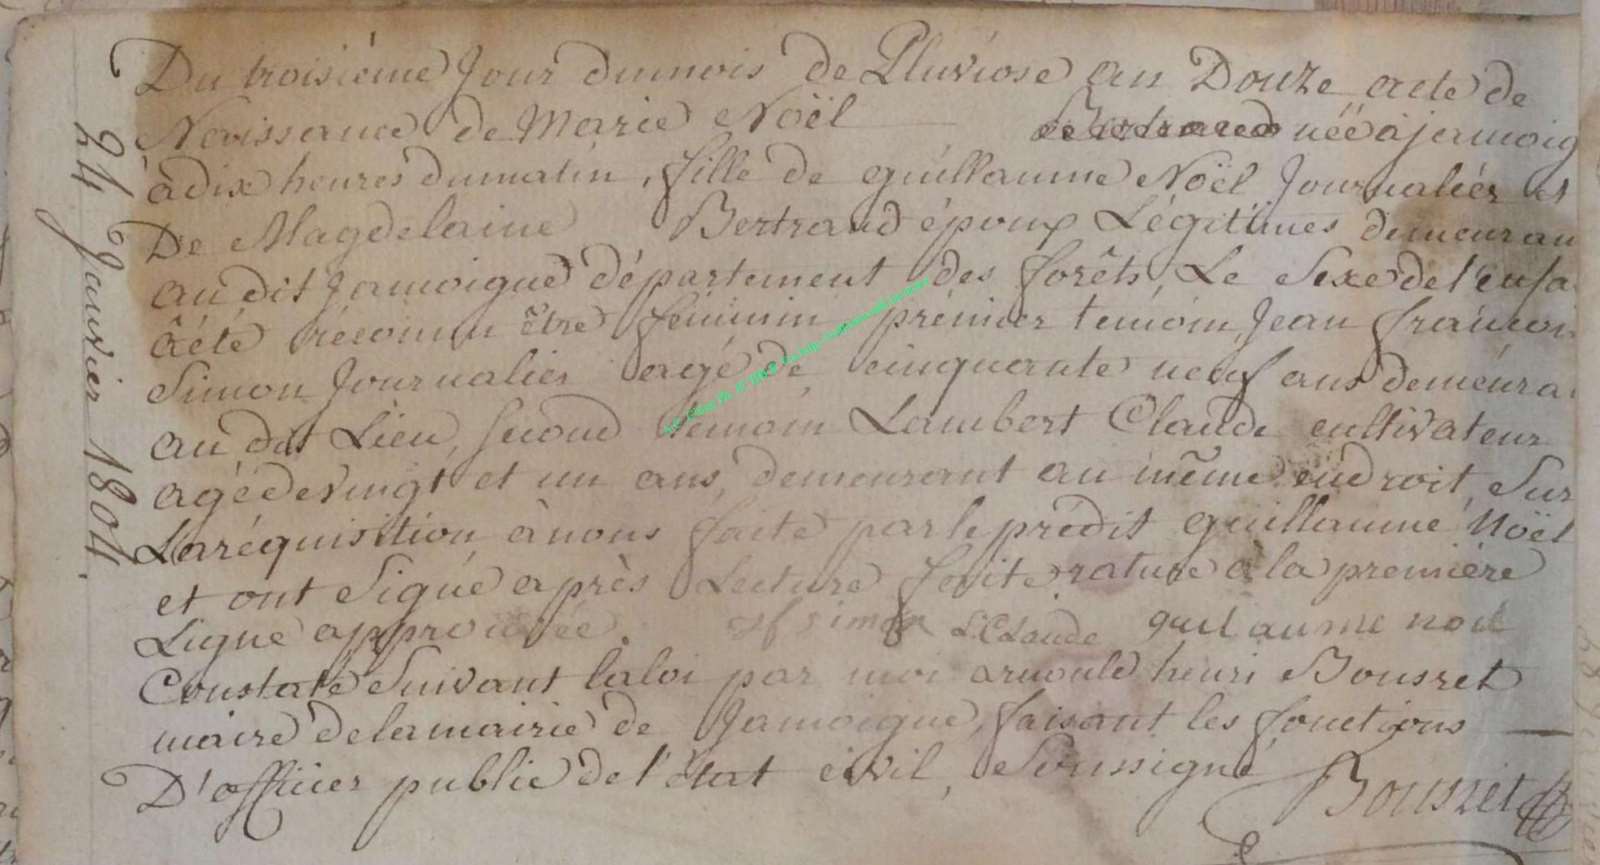 24 Janvier 1804.
Du troisiéme Jour dumois de Pluviose an Douze acte de
Naissance de Marie Noël née ajamoig
àdix heures dumatin, fille de guillaume Noël Journaliér et
De Magdelaine Bertrand époux Légitimes demeuran
au dit Jamoigne département des forêts, Le Sexe de l'enfa
àété réconnu être féminin, prémier témoin Jean françoi
Simon Journaliér agé de cinquante neuf ans demeura
au dit Lieu, second témoin Lambert Claude cultivateur
agé de vingt et un ans, demeurant au même endroit, Sur
La réquisition ànous faite par le prédit guillaume Noël
et ont Signé après Lecture faite, rature à la première
Ligne approuvée. simon L Claude guilaume noel
Constaté Suivant laloi par moi arnould henri Bousret
maire delamairie de Jamoigne, faisant les fonctions
D'officier public de l'état civil, Soussigné
Bousret